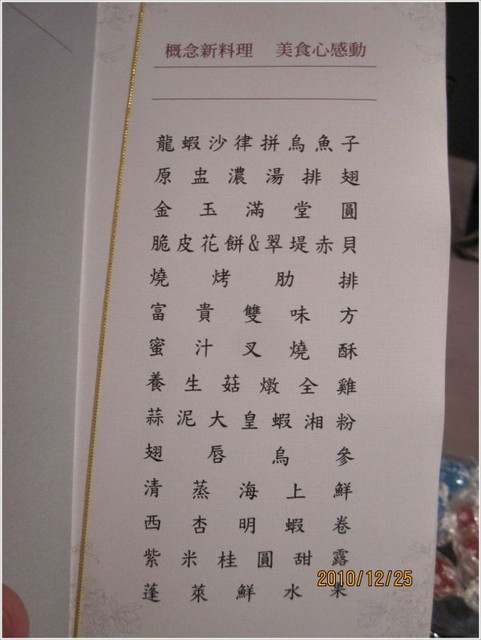 概念新料理 美食心感動
龍蝦沙律拼烏魚子
原盅濃湯排翅
金玉滿堂圓
脆皮花餅&翠堤赤貝
燒烤肋排
富貴雙味方
蜜汁叉燒酥
養生菇燉全雞
蒜泥大皇蝦湘粉
翅唇烏參
清蒸海上鮮
西杏明蝦卷
紫米桂圓甜露
蓬萊鮮水果
2010/12/25